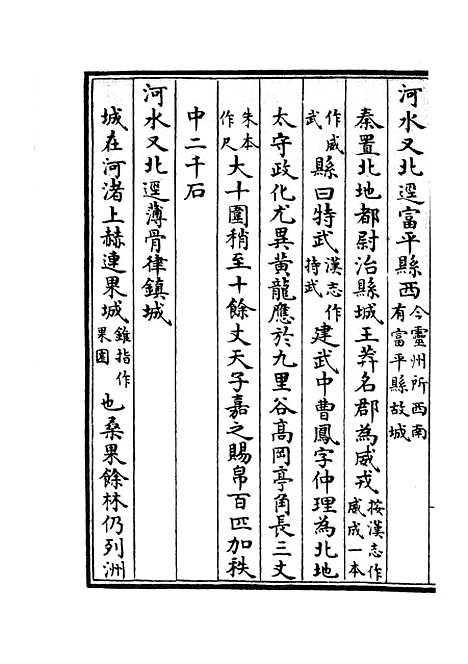 河水又北逕富平縣西今靈州所西南有富平縣故城
秦置北地都尉治縣城王莽名郡為威戎按漢志作威成一本
作威武縣曰特武漢志作持武建武中曹鳳字仲理為北地
太守政化尤異黃龍應於九里谷高岡亭角長三丈
朱本作尺大十圍稍至十餘丈天子嘉之賜帛百匹加秩
中二千石
河水又北逕薄骨律鎮城
城在河渚上赫連果城錐指作果園也桑果餘林仍列洲